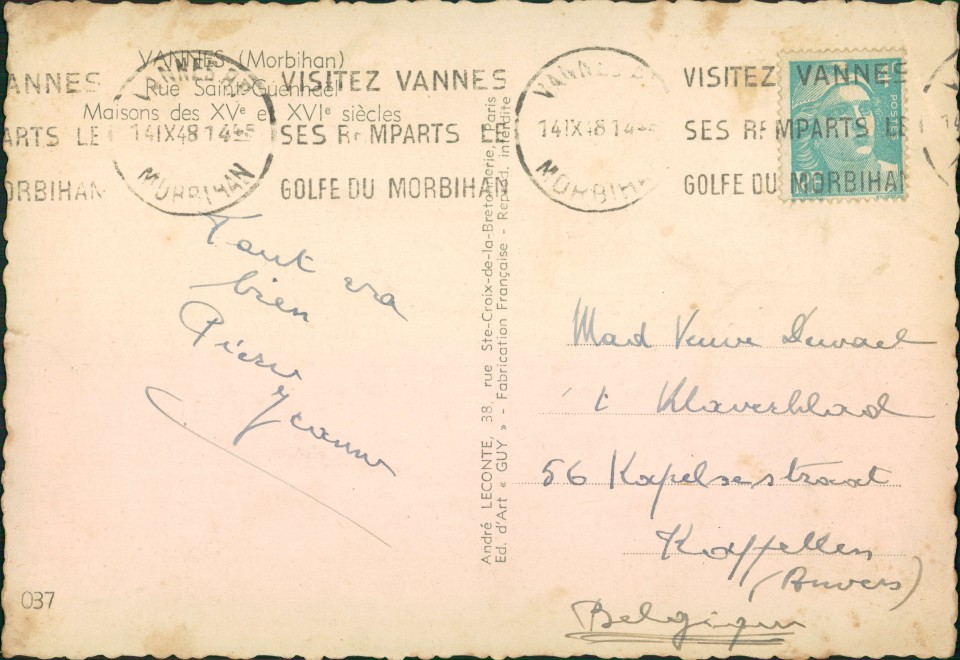 VANNES (Morbihan)
Rue Saint-Guenhaël
Maisons des XVe et XVIe siècles
ANNES
ARTS LE
ORBIHAN
VANNES
14 IX 48 14
MORBIHAN
VISITEZ VANNES
SES REMPARTS LE
GOLFE DU MORBIHAN
VANNES
14 IX 48 14
MORBIHAN
VISITEZ VANNES
SES REMPARTS LE
GOLFE DU MORBIHAN
POSTES
Tout va
bien
Pierre
Jeanne
André LECONTE, 38, rue Ste-Croix-de-la-Bretonnerie, Paris
Ed. d'Art « GUY » - Fabrication Française - Reprod. interdite
Mad Veuve Duwael
't Klaverblad
56 Kapelsestraat
Kappellen
(Anvers)
Belgique
037